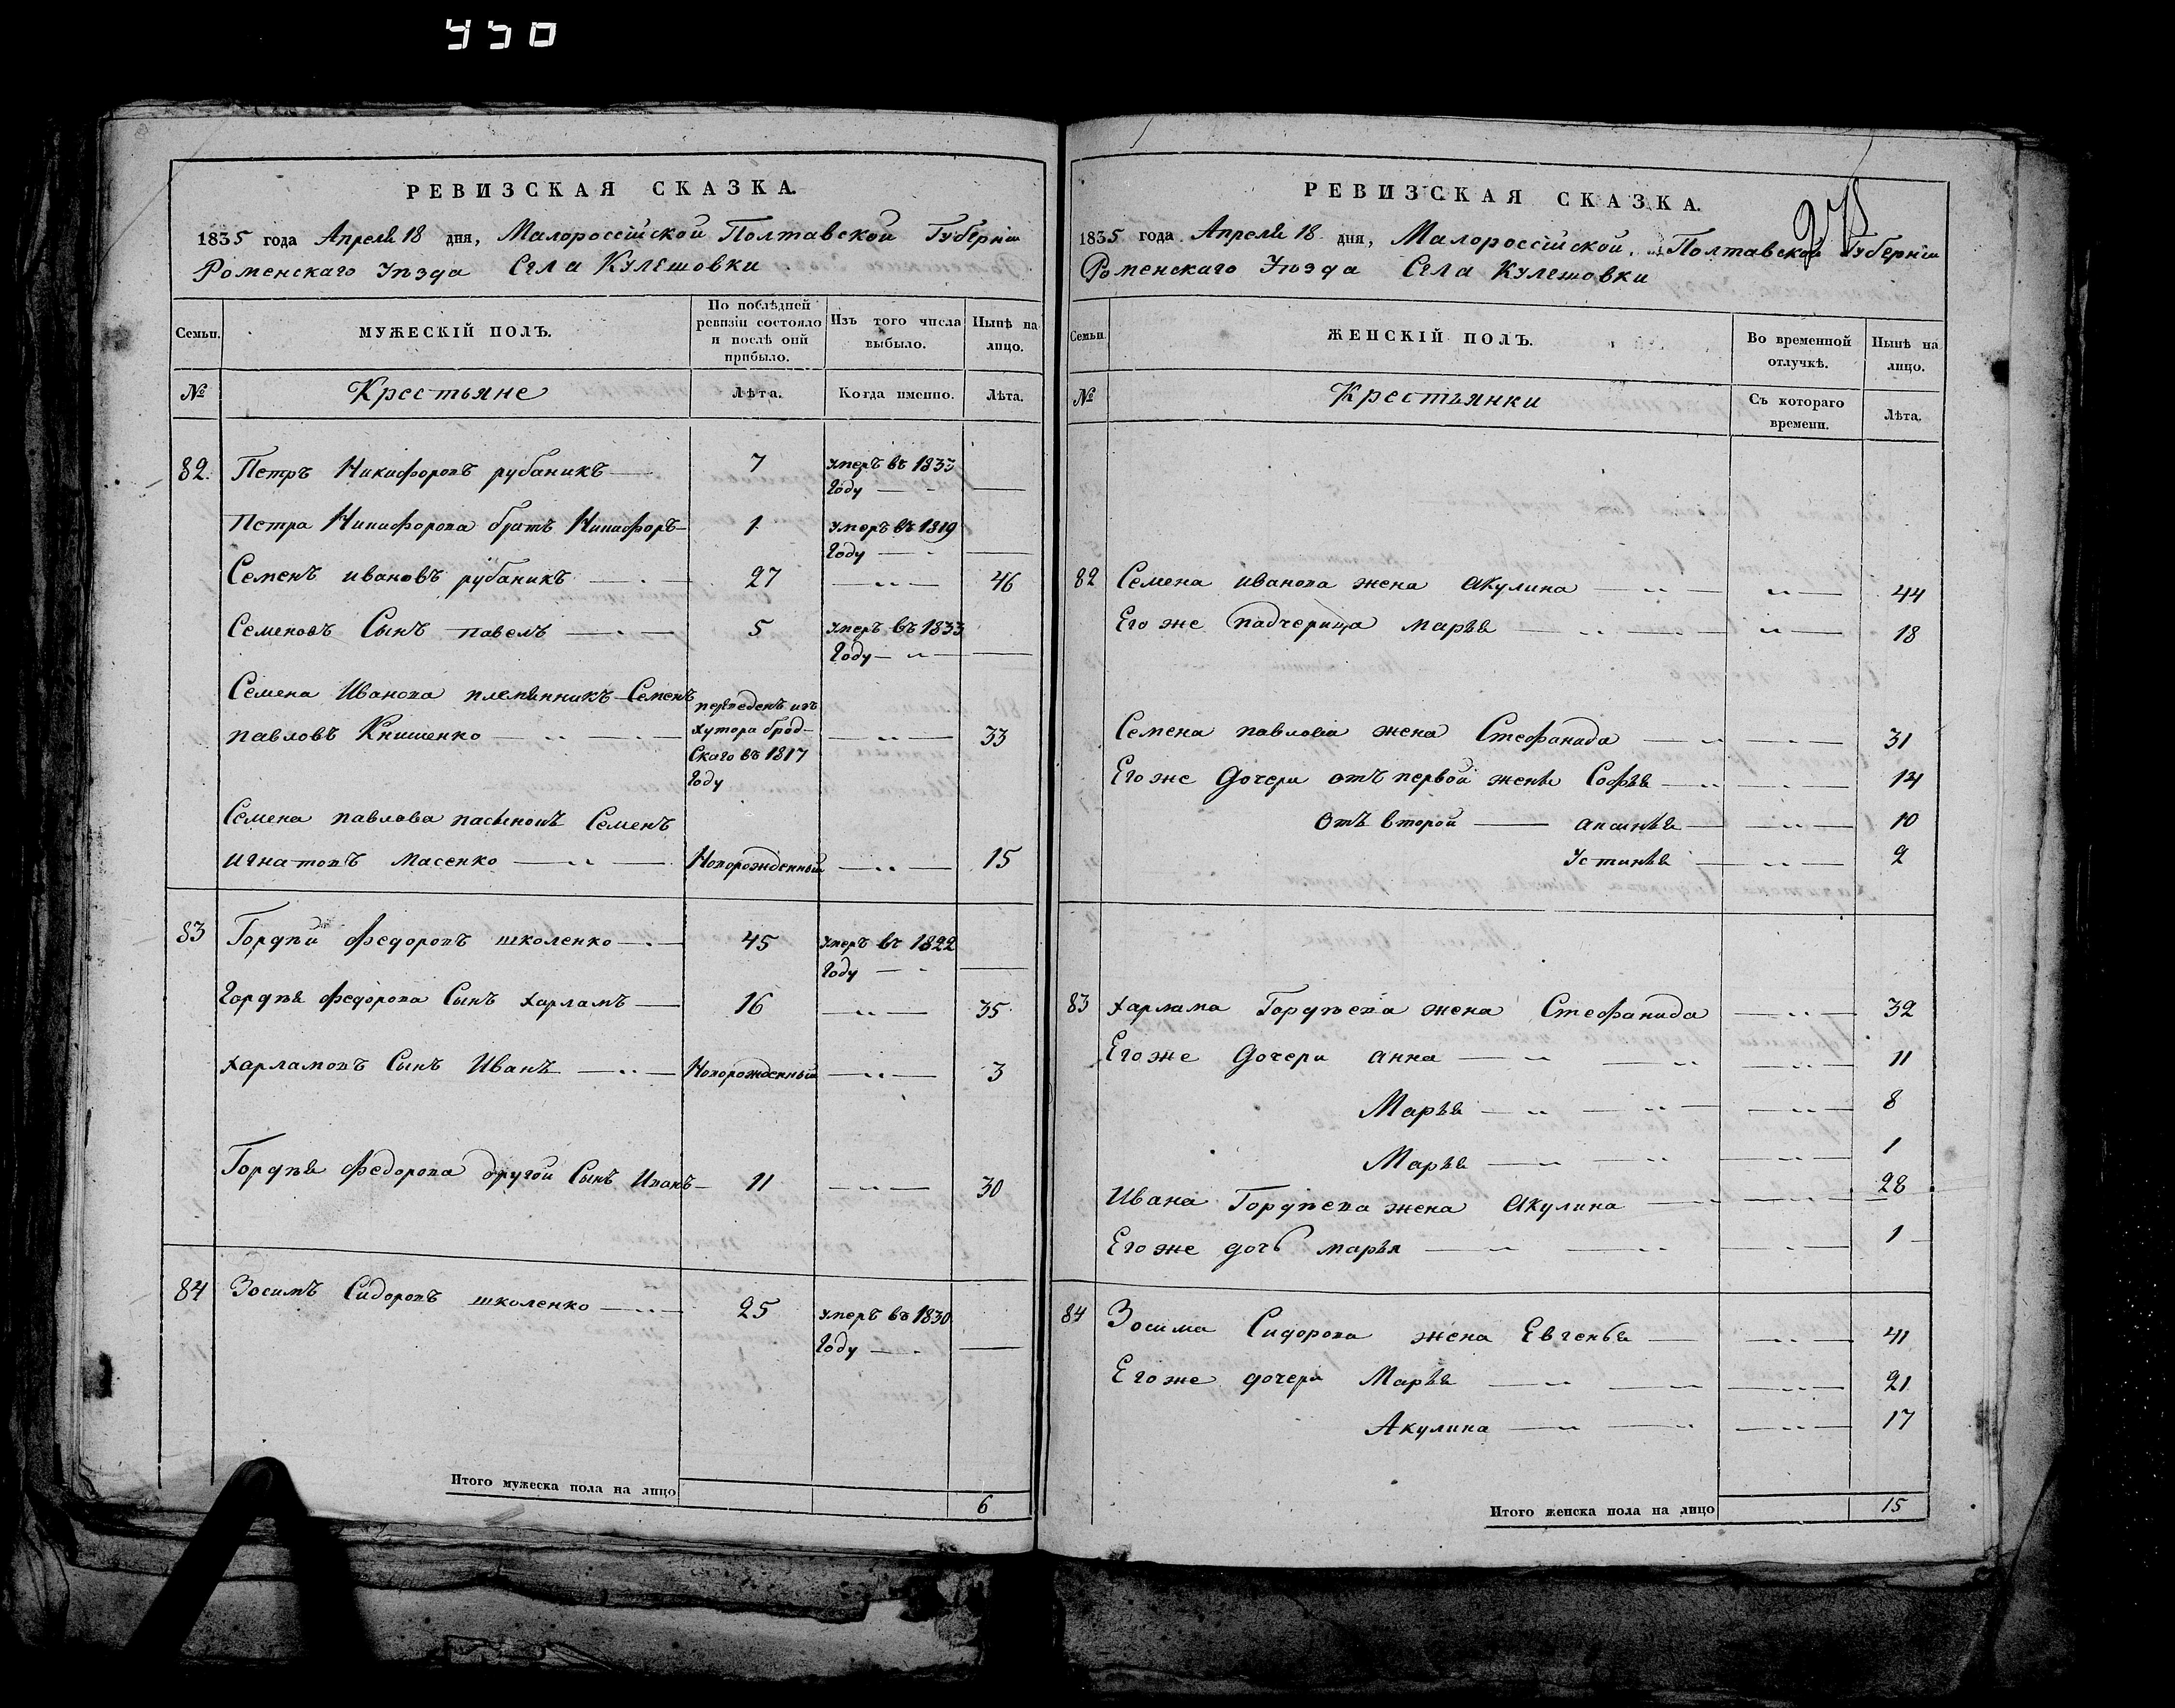 450
РЕВИЗСКАЯ СКАЗКА.
1835 года Апреля 18 дня, Малороссійской Полтавской Губерніи
Роменскаго Уѣзда Села Кулешовки
Семьи.
МУЖЕСКІЙ ПОЛЪ.
По послѣдней ревизіи состояло и послѣ оной прибыло.
Изъ того числа выбыло.
Нынѣ на лицо.
№
Крестьяне
Лѣта.
Когда именно.
Лѣта.
82. Петръ Никифоровъ рубаникъ 7 умеръ въ 1833
Году
Петра Никифорова братъ Никифоръ 1 умеръ въ 1819
Году
Семенъ ивановъ рубаникъ 27 46
Семеновъ Сынъ павелъ 5 умеръ въ 1833
Году
Семена Иванова племянникъ Семенъ переведенъ изъ
павловъ Книшенко хутора брод- 33
скаго въ 1817
Году
Семена павлова пасынокъ Семенъ
игнатовъ масенко Новорожденный 15
83 Гордѣй федоровъ школенко 45 умеръ въ 1822
Году
Гордѣя федорова Сынъ харламъ 16 35
харламовъ Сынъ Иванъ Новорожденный 3
Гордѣя федорова другой Сынъ Иванъ 11 30
84 Зосимъ Сидоровъ школенко 25 умеръ въ 1830
Году
Итого мужеска пола на лицо 6
РЕВИЗСКАЯ СКАЗКА.
1835 года Апреля 18 дня, Малороссійской Полтавской Губерніи
Роменскаго Уѣзда Села Кулешовки
Семьи.
ЖЕНСКІЙ ПОЛЪ.
Во временной отлучкѣ.
Нынѣ на лицо.
№
Крестьянки
Съ котораго времени.
Лѣта.
82 Семена иванова жена акулина 44
Его же падчерица марья 18
Семена павлова жена Стефанида 31
Его же Дочери отъ первой жены Софья 14
Отъ второй апсинья 10
Устинья 2
83 харлама Гордѣева жена Стефанида 32
Его же Дочери анна 11
Марья 8
Марья 1
Ивана Гордѣева жена Акулина 28
Его же дочь марья 1
84 Зосима Сидорова жена Евгенья 41
Его же дочери Марья 21
Акулина 17
Итого женска пола на лицо 15